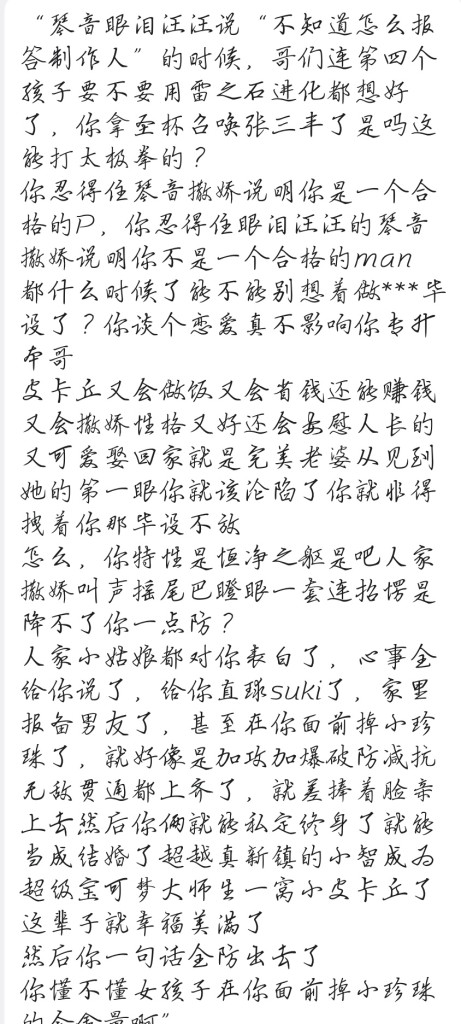 “琴音眼泪汪汪说“不知道怎么报
答制作人”的时候，哥们连第四个
孩子要不要用雷之石进化都想好
了，你拿圣杯召唤张三丰了是吗这
能打太极拳的？
你忍得住琴音撒娇说明你是一个合
格的P，你忍得住眼泪汪汪的琴音
撒娇说明你不是一个合格的man
都什么时候了能不能别想着做***毕
设了？你谈个恋爱真不影响你专升
本哥
皮卡丘又会做饭又会省钱还能赚钱
又会撒娇性格又好还会安慰人长的
又可爱娶回家就是完美老婆从见到
她的第一眼你就该沦陷了你就非得
拽着你那毕设不放
怎么，你特性是恒净之躯是吧人家
撒娇叫声摇尾巴瞪眼一套连招愣是
降不了你一点防？
人家小姑娘都对你表白了，心事全
给你说了，给你直球suki了，家里
报备男友了，甚至在你面前掉小珍
珠了，就好像是加攻加爆破防减抗
无敌贯通都上齐了，就差捧着脸亲
上去然后你俩就能私定终身了就能
当成结婚了超越真新镇的小智成为
超级宝可梦大师生一窝小皮卡丘了
这辈子就幸福美满了
然后你一句话全防出去了
你懂不懂女孩子在你面前掉小珍珠
的含金量啊”